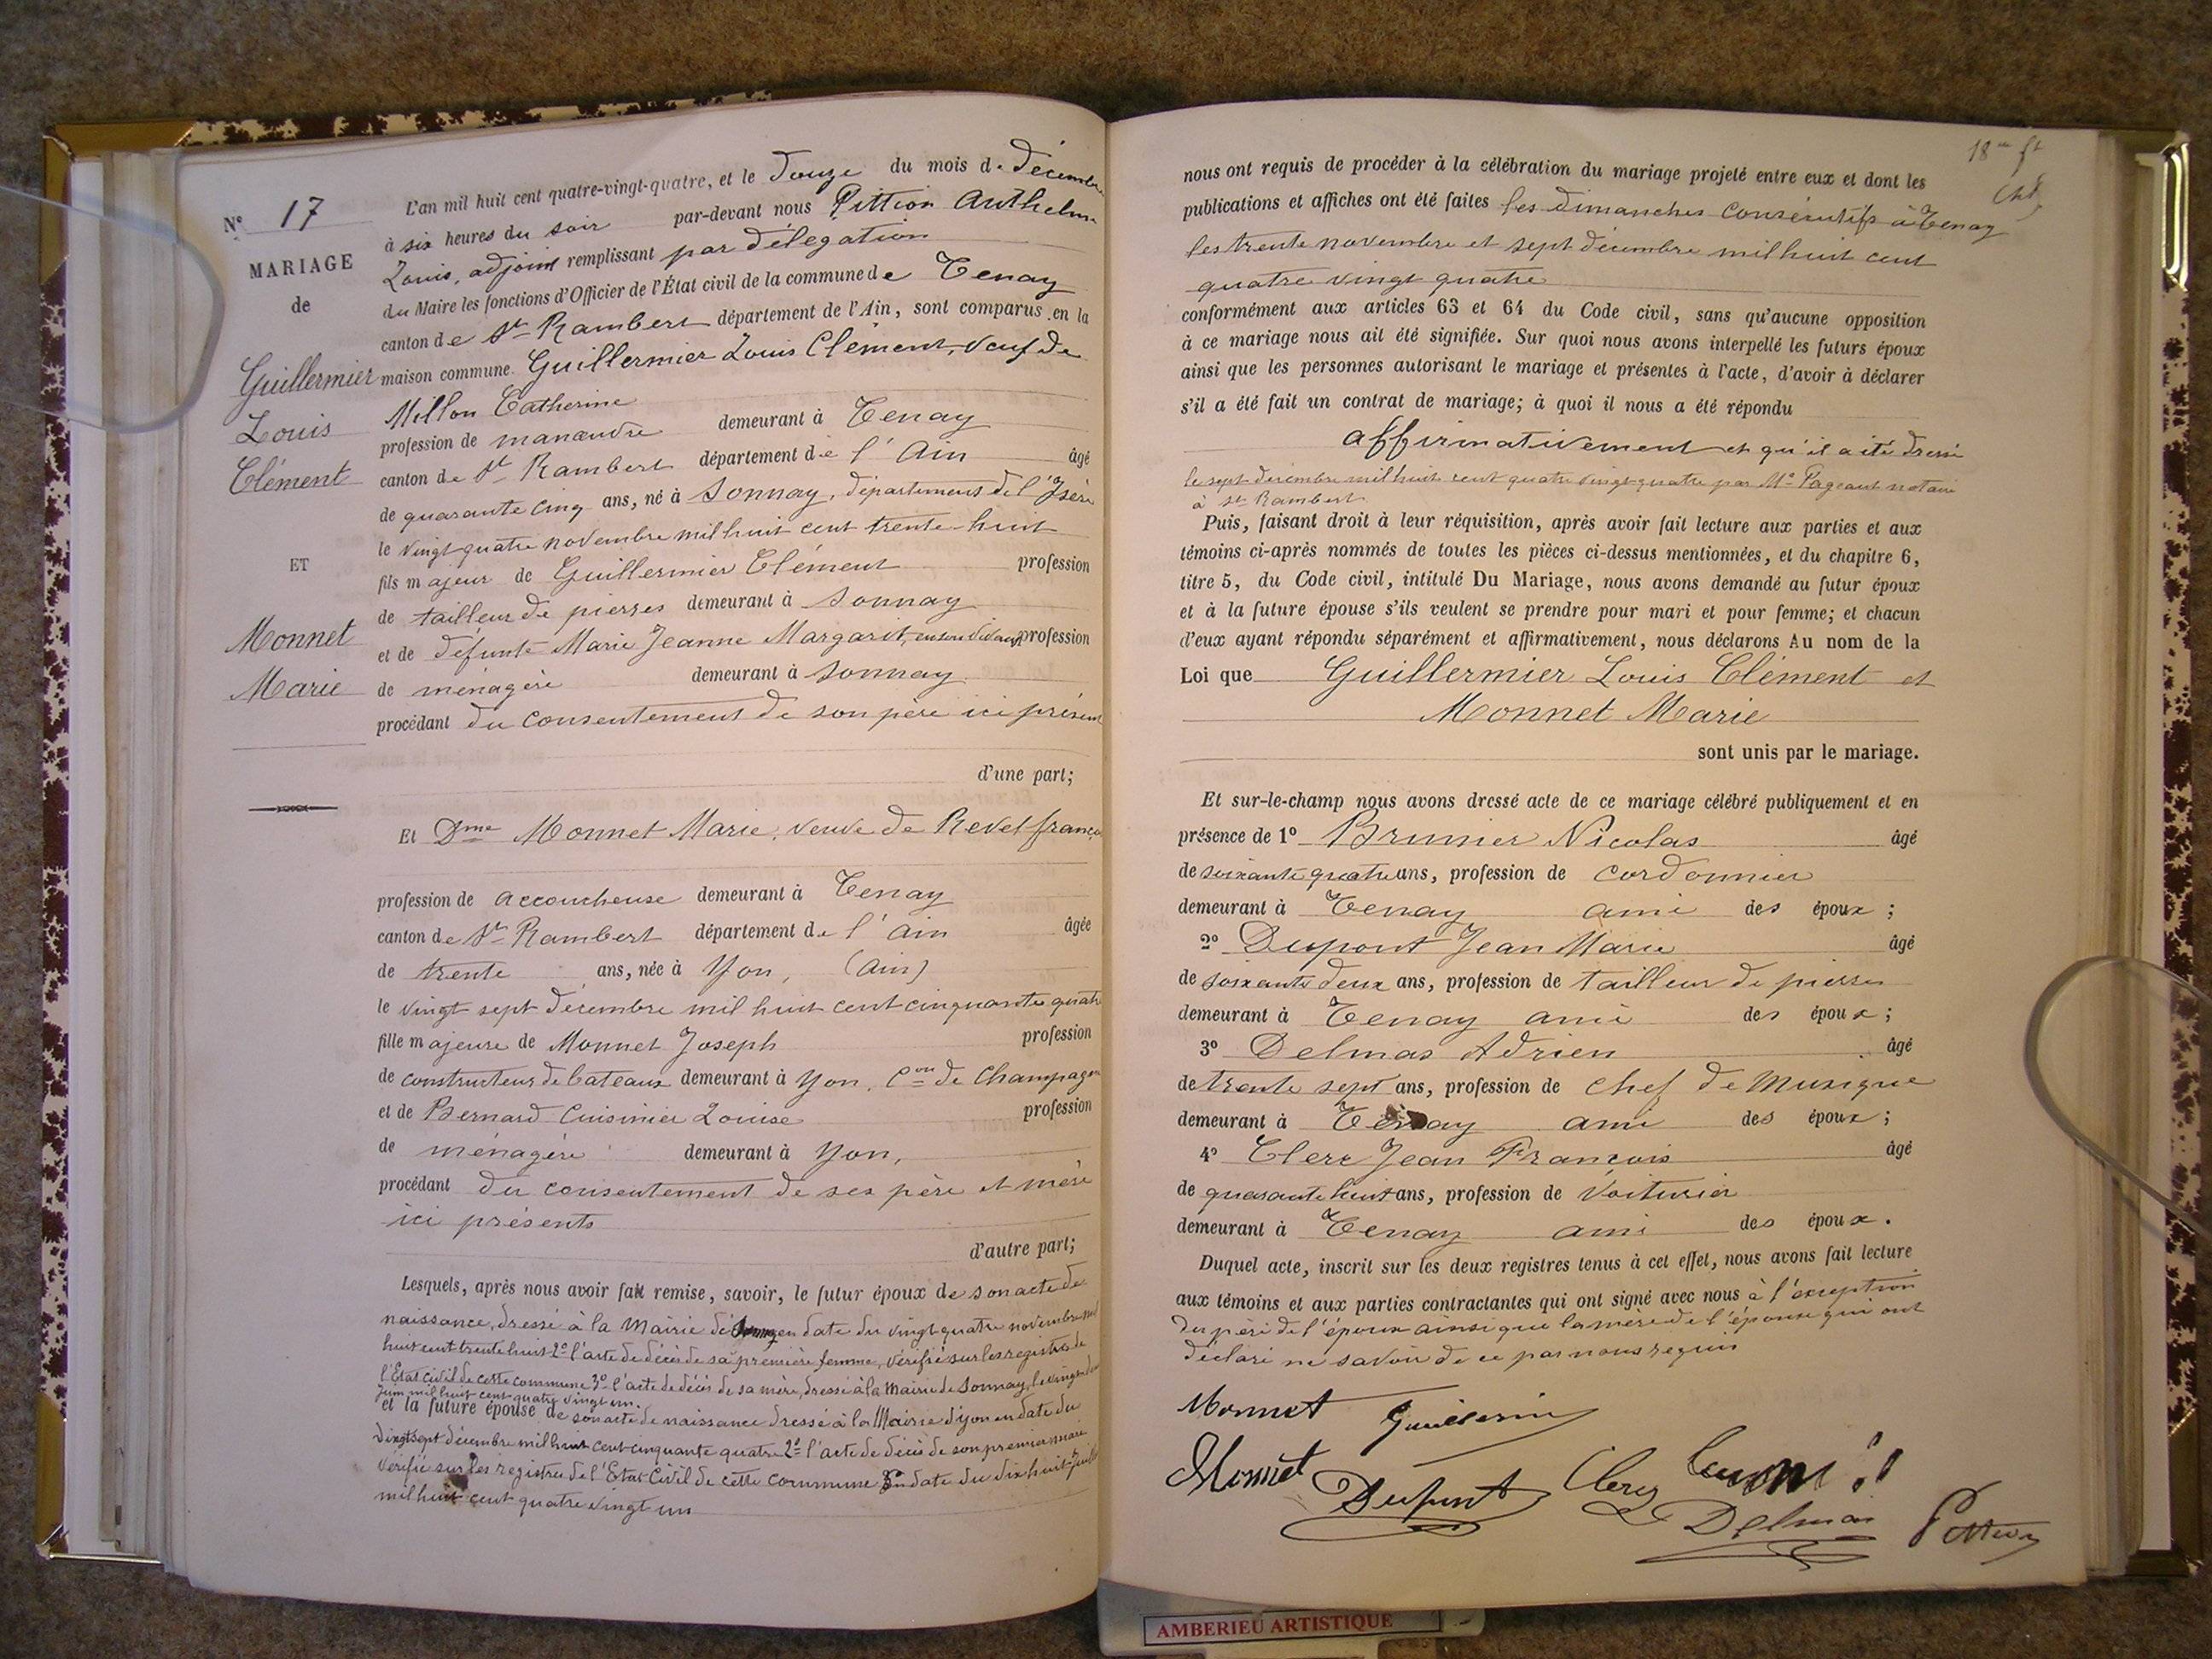 N° 17
MARIAGE
de
Guillermier
Louis
Clément
ET
Monnet
Marie
L'an mil huit cent quatre-vingt-quatre, et le Douze du mois de Décembre
à six heures du soir par-devant nous Pittion Anthelme
Louis, adjoint remplissant par délégation
du Maire les fonctions d'Officier de l'État civil de la commune de Tenay
canton de St Rambert département de l'Ain, sont comparus en la
maison commune. Guillermier Louis Clément, veuf de
Millon Catherine
profession de manœuvre demeurant à Tenay
canton de St Rambert département de l'Ain âgé
de quarante cinq ans, né à Sonnay, département de l'Isère
le vingt-quatre novembre mil huit cent trente-huit
fils majeur de Guillermier Clément profession
de tailleur de pierres demeurant à Sonnay
et de défunte Marie Jeanne Margarit, en son vivant profession
de ménagère demeurant à Sonnay.
procédant du consentement de son père ici présent
d'une part;
Et Dme Monnet Marie, veuve de Revel françois
profession de accoucheuse demeurant à Tenay
canton de St Rambert département de l'Ain âgée
de trente ans, née à Yon, (Ain)
le vingt sept décembre mil huit cent cinquante quatre
fille majeure de Monnet Joseph profession
de constructeur de bateaux demeurant à Yon, Con de Champagne
et de Bernard Cuisinier Louise profession
de ménagère demeurant à Yon,
procédant du consentement de ses père et mère
ici présents
d'autre part;
Lesquels, après nous avoir fait remise, savoir, le futur époux de son acte de
naissance, dressé à la Mairie de en date du vingt quatre novembre mil
huit cent trente huit 2° l'acte de décès de sa première femme, vérifié sur les registres de
l'État civil de cette commune 3° l'acte de décès de sa mère, dressé à la Mairie de Sonnay, le vingt
juin mil huit cent quatre vingt un.
et la future épouse de son acte de naissance dressé à la Mairie d'Yon en date du
vingt sept décembre mil huit cent cinquante quatre 2° l'acte de décès de son premier mari
vérifié sur les registres de l'État Civil de cette commune en date du dix huit juillet
mil huit cent quatre vingt un
18
nous ont requis de procéder à la célébration du mariage projeté entre eux et dont les
publications et affiches ont été faites les dimanches consécutifs à Tenay
les trente novembre et sept décembre mil huit cent
quatre vingt quatre
conformément aux articles 63 et 64 du Code civil, sans qu'aucune opposition
à ce mariage nous ait été signifiée. Sur quoi nous avons interpellé les futurs époux
ainsi que les personnes autorisant le mariage et présentes à l'acte, d'avoir à déclarer
s'il a été fait un contrat de mariage; à quoi il nous a été répondu
affirmativement et qu'il a été dressé
le sept décembre mil huit cent quatre vingt quatre par Me Pageaut notaire
à St Rambert
Puis, faisant droit à leur réquisition, après avoir fait lecture aux parties et aux
témoins ci-après nommés de toutes les pièces ci-dessus mentionnées, et du chapitre 6,
titre 5, du Code civil, intitulé Du Mariage, nous avons demandé au futur époux
et à la future épouse s'ils veulent se prendre pour mari et pour femme; et chacun
d'eux ayant répondu séparément et affirmativement, nous déclarons Au nom de la
Loi que Guillermier Louis Clément et
Monnet Marie
sont unis par le mariage.
Et sur-le-champ nous avons dressé acte de ce mariage célébré publiquement et en
présence de 1° Brunier Nicolas âgé
de soixante quatre ans, profession de cordonnier
demeurant à Tenay ami des époux;
2° Dupont Jean Marie âgé
de soixante deux ans, profession de tailleur de pierres
demeurant à Tenay ami des époux;
3° Delmas Adrien âgé
de trente sept ans, profession de chef de musique
demeurant à Tenay ami des époux;
4° Clerc Jean François âgé
de quarante huit ans, profession de voiturier
demeurant à Tenay ami des époux.
Duquel acte, inscrit sur les deux registres tenus à cet effet, nous avons fait lecture
aux témoins et aux parties contractantes qui ont signé avec nous à l'exception
du père de l'époux ainsi que la mère de l'épouse qui ont
déclaré ne savoir de ce par nous requis
Monnet Guillermier
Monnet Dupont Clerc
Delmas Pittion
AMBERIEU ARTISTIQUE